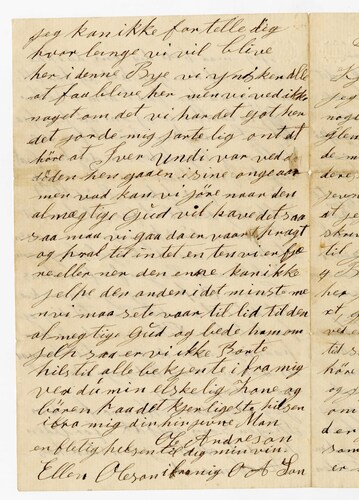 jeg kan ikke fortelle dig
hvor længe vi vil blive
her i denne Bye vi ynsker alle
at faa blive her men vi ved ikke
naget om det vi har det got her
det jorde mig jærtelig ont at
höre at Iver Undi var ved
döden hen gaaen i sine unge aar
men vad kan vi jöre naar den
almegtige Gud vil have det saa
saa maa vi gaa da er vaar pragt
og pral til intet en ten vi er fjæ
re eller nær den ene kan ikke
jelpe den anden i det minste me
n vi maa sete vaar til lid til den
almegtige Gud og bede ham om
jelp saa er vi ikke Borte
hils til alle bekjente ifra mig
ver du min elskelig Kone og
bören paa det kjerligeste hilsen
ifra mig din hen jevne Man
Ole Andreson
en flitig helsen til dig min ven
Ellen Oleson ifra mig O A Son